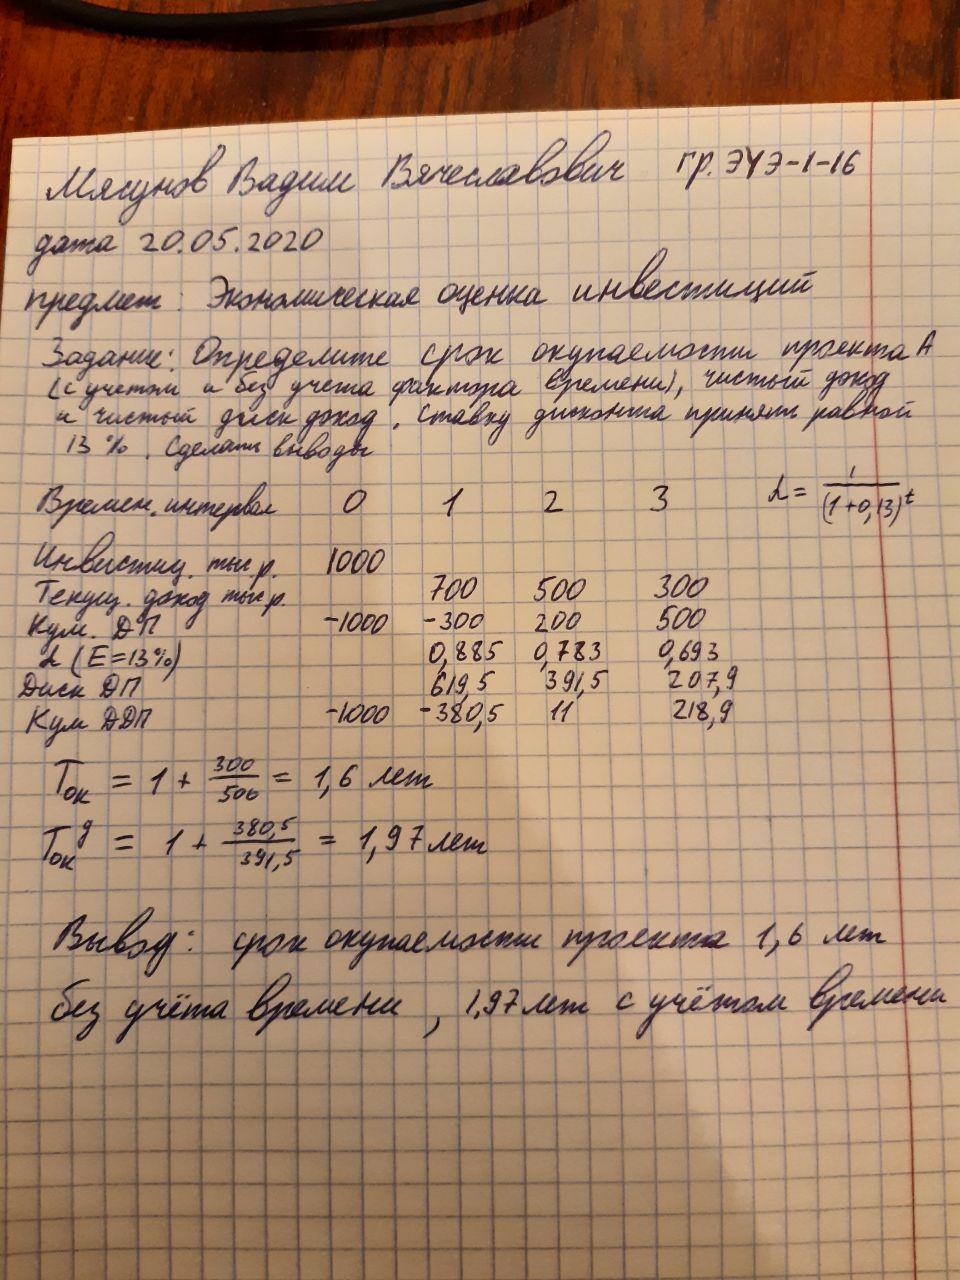 Мясунов Вадим Вячеславович гр. ЭУЭ-1-16
дата 20.05.2020
предмет: Экономическая оценка инвестиций
Задание: Определите срок окупаемости проекта А
(с учетом и без учета фактора времени), чистый доход
и чистый диск доход. Ставку дисконта принять равной
13 %. Сделать выводы
Времен. интервал 0 1 2 3 α = 1/(1+0,13)^t
Инвестиц. тыс р. 1000
Текущ. доход тыс р. 700 500 300
Кум. ДП -1000 -300 200 500
α (E=13%) 0,885 0,783 0,693
Диск ДП 619,5 391,5 207,9
Кум ДДП -1000 -380,5 11 218,9
Ток = 1 + 300/500 = 1,6 лет
Ток^д = 1 + 380,5/391,5 = 1,97 лет
Вывод: срок окупаемости проекта 1,6 лет
без учёта времени, 1,97 лет с учётом времени